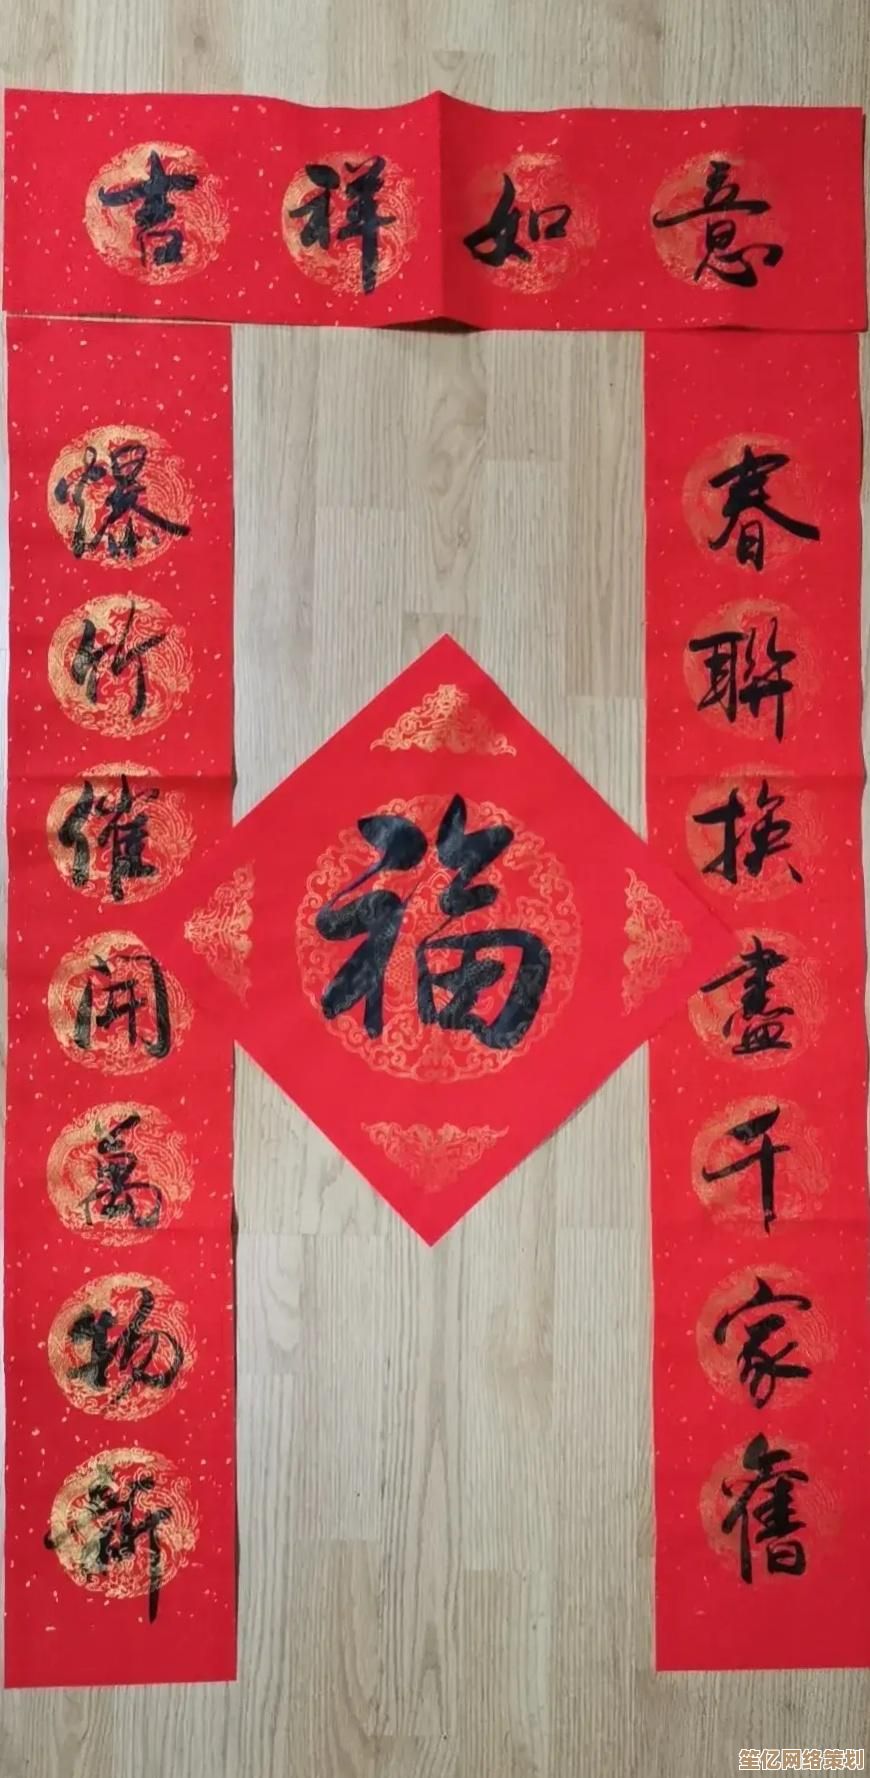 吉祥如意
春聯換盡千家舊
爆竹催開萬物新
福
笙亿网络策划